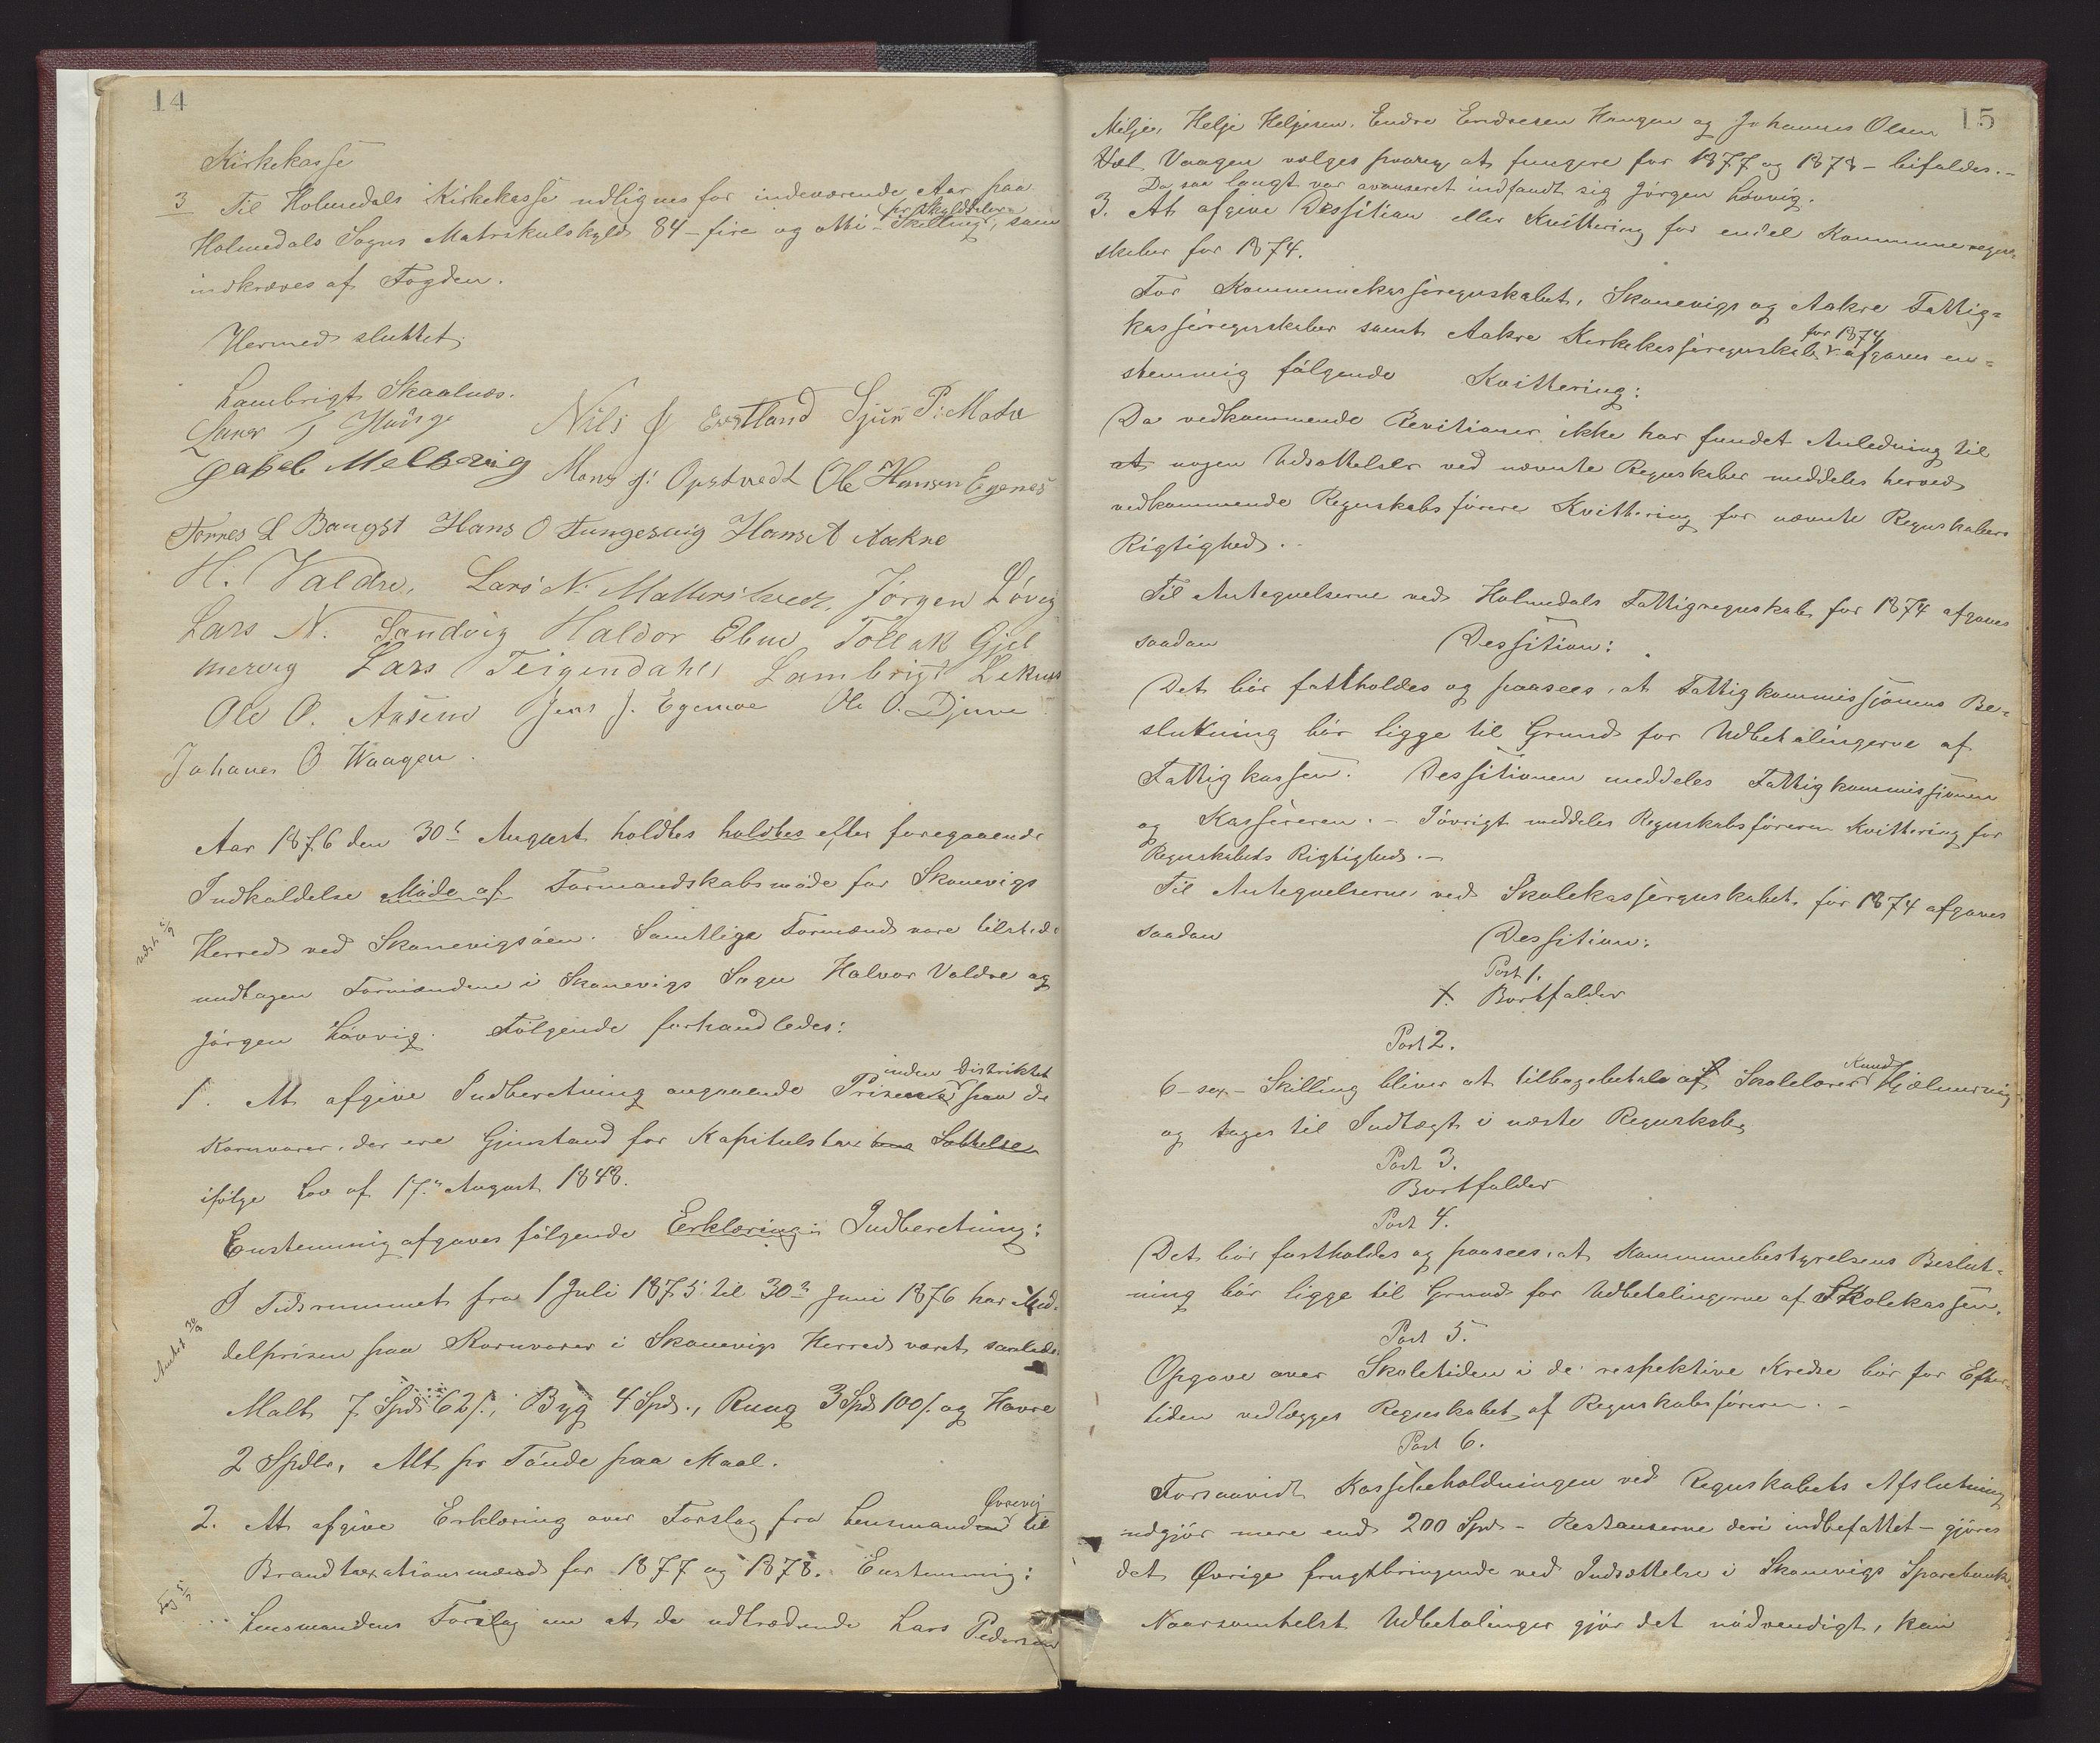 14
Kirkekasse
3 Til Holmedals Kirkekasse udlignes for indeværende Aar paa
Holmedals Sogns Matrikulskyld 84 - fire og otti - Skilling pr Skylddaler, som
indkræves af Fogden.
Hermed sluttet.
Lambrigt Skaalnæs.
Nils J Eestland Sjur P. Matre
Mons J: Opstvedt Ole Hansen Egenes
Tørres L Baugst Hans O Tungesvig Hans A Aakre
H. Valdre, Lars N. Mattersteech, Jørgen Løvig
Lars N. Sandvig Haldor Ebne Tollak Gjel
mervig Lars Teigendahl Lambrigt Leknes
Ole O. Aasem Jens J. Egemoe Ole O. Djuve
Johanes O Waagen.
Aar 1876 den 30te August holdtes holdtes efter foregaaende
Indkaldelse Møde af Formandskabsmøde for Skonevigs
Herred ved Skonevigsøen. Samtlige Formænd vare tilstede
undtagen Formændene i Skonevigs Sogn Halvor Valdre og
Jørgen Løvvig. Følgende forhandledes:
1. At afgive Indberetning angaaende Priserne inden Distriktet paa de
Kornvarer, der ere Gjenstand for Kapitulstaxtens Sættelse
ifølge Lov af 17de August 1848.
Enstemmig afgaves følgende Erklæring: Indberetning:
I Tidsrummet fra 1 Juli 1875 til 30te Juni 1876 har Mid-
delprisen paa Kornvarer i Skonevigs Herred været saaledes
Malt 7 Spd 62 s., Byg 4 Spd., Rung 3 Spd 100 s. og Havre
2 Spdlr, Alt pr Tønde paa Maal.
2. At afgive Erklæring over Forslag fra Lensmand Øvrevig til
Brandtaxationsmænd for 1877 og 1878. Enstemmig:
Lensmandens Forslag om at de udtrædende Lars Pedersen
15
Milje, Helje Heljesen, Endre Endresen Haugen og Johannes Olsen
Vaagen vælges paany at fungere for 1877 og 1878 - bifaldes. -
Da saa langt var avanseret indfandt sig Jørgen Løvvig.
3. At afgive Dessition eller Kvittering for endel Kommuneregn-
skaber for 1874.
For Kommunekasseregnskabet, Skonevigs og Aakre Fattig-
kasseregnskaber samt Aakre Kirkekasseregnskab for 1874 afgaves en-
stemmig følgende Kvittering:
Da vedkommende Revisioner ikke har fundet Anledning til
at nogen Udsættelser ved nævnte Regnskaber meddeles herved
vedkommende Regnskabsførere Kvittering for nævnte Regnskabers
Rigtighed. -
Til Antegnelserne ved Holmedals Fattigregnskab for 1874 afgaves
saadan Dessition:
Det bør fastholdes og paasees, at Fattigkommissjonens Be-
slutning bør ligge til Grund for Udbetalingerne af
Fattigkassen. Dessitionen meddeles Fattigkommissjonen
og Kassereren. - Iøvrigt meddeles Regnskabsføreren Kvittering for
Regnskabets Rigtighed. -
Til Antegnelserne ved Skolekasseregnskabet for 1874 afgaves
saadan Dessition:
Post 1.
Bortfalder
Post 2.
6 - sex - Skilling bliver at tilbagebetale af Skolelærer Knud Gjelmervig
og tages til Indtægt i næste Regnskab.
Post 3.
Bortfalder
Post 4.
Det bør fastholdes og paasees, at Kommunebestyrelsens Beslut-
ning bør ligge til Grund for Udbetalingerne af Skolekassen.
Post 5.
Opgave over Skoletiden i de respektive Kredse bør for Efter-
tiden vedlægges Regnskabet af Regnskabsføreren. -
Post 6.
Forsaavidt Kassebeholdningen ved Regnskabets Afslutning
udgjør mere end 200 Spd - Restanserne deri indbefattet - gjøres
det Øvrige frugtbringende ved Indsættelse i Skonevigs Sparebank.
Naarsomhelst Udbetalinger gjør det nødvendigt, kan